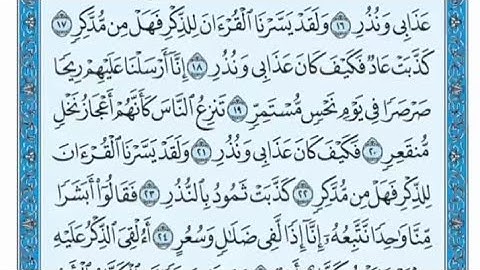 عَذَابِى وَنُذُرِ ١٦ وَلَقَدۡ يَسَّرۡنَا ٱلۡقُرۡءَانَ لِلذِّكۡرِ فَهَلۡ مِن مُّدَّكِرٖ ١٧
كَذَّبَتۡ عَادٞ فَكَيۡفَ كَانَ عَذَابِى وَنُذُرِ ١٨ إِنَّآ أَرۡسَلۡنَا عَلَيۡهِمۡ رِيحٗا
صَرۡصَرٗا فِى يَوۡمِ نَحۡسٖ مُّسۡتَمِرّٖ ١٩ تَنزِعُ ٱلنَّاسَ كَأَنَّهُمۡ أَعۡجَازُ نَخۡلٖ
مُّنقَعِرٖ ٢٠ فَكَيۡفَ كَانَ عَذَابِى وَنُذُرِ ٢١ وَلَقَدۡ يَسَّرۡنَا ٱلۡقُرۡءَانَ
لِلذِّكۡرِ فَهَلۡ مِن مُّدَّكِرٖ ٢٢ كَذَّبَتۡ ثَمُودُ بِٱلنُّذُرِ ٢٣ فَقَالُوٓاْ أَبَشَرٗا
مِّنَّا وَٰحِدٗا نَّتَّبِعُهُۥٓ إِنَّآ إِذٗا لَّفِى ضَلَٰلٖ وَسُعُرٍ ٢٤ أَءُلۡقِىَ ٱلذِّكۡرُ عَلَيۡهِ